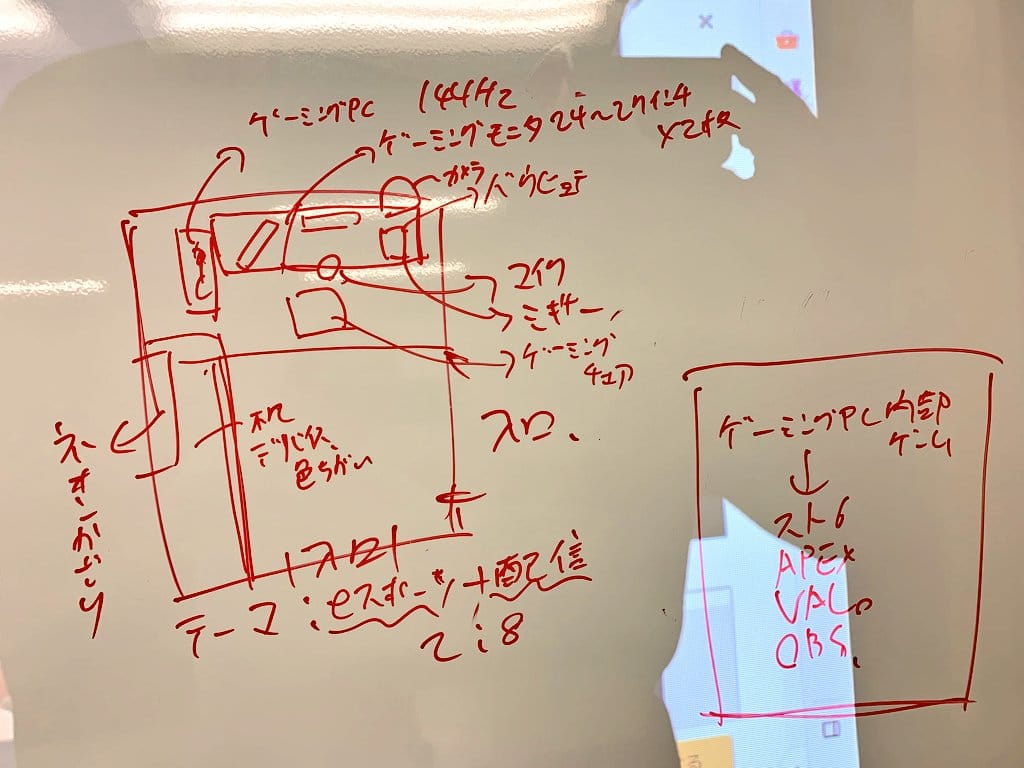 ゲーミングPC
144Hz
ゲーミングモニタ 24〜27インチ
×2枚
カメラ
マイク
ミキサー
ゲーミング
チェア
入口、
机
デバイス、
色ちがい
ネオンかざり
入口
テーマ:eスポーツ+配信
2:8
ゲーミングPC内部
ゲーム
スト6
APEX
VALO
OBS、